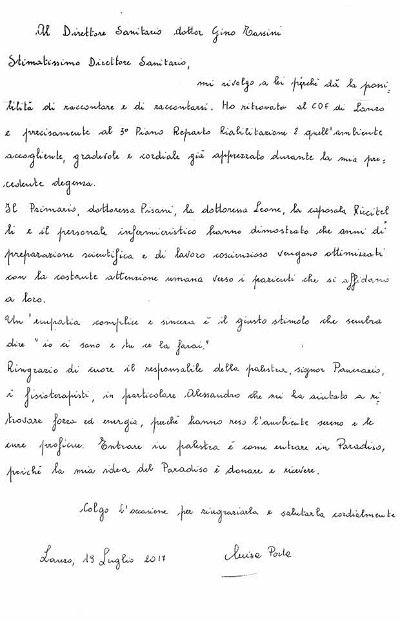 Al Direttore Sanitario dottor Gino Massini
Stimatissimo Direttore Sanitario,
mi rivolgo a lei perchè dà la possi-
bilità di raccontare e di raccontarsi. Ho ritrovato al COF di Lanzo
e precisamente al 3° Piano Reparto Riabilitazione 2 quell'ambiente
accogliente, gradevole e cordiale già apprezzato durante la mia pre-
cedente degenza.
Il Primario, dottoressa Pisani, la dottoressa Leone, la caposala Riccitel
li e il personale infermieristico hanno dimostrato che anni di
preparazione scientifica e di lavoro coscienzioso vengono ottimizzati
con la costante attenzione umana verso i pazienti che si affidano
a loro.
Un'empatia complice e sincera è il giusto stimolo che sembra
dire "io ci sono e tu ce la farai."
Ringrazio di cuore il responsabile della palestra, signor
i fisioterapisti, in particolare Alessandro che mi ha aiutato a ri
trovare forza ed energia, perchè hanno reso l'ambiente sereno e le
cure proficue. Entrare in palestra è come entrare in Paradiso,
poichè la mia idea del Paradiso è donare e ricevere.
Colgo l'occasione per ringraziarla e salutarla cordialmente
Lanzo, 19 Luglio 2017 Luisa Porta